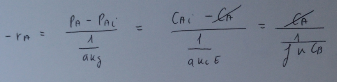 -rA = (PA - PAi) / (1 / (a kg)) = (CAi - C̸A̸) / (1 / (a kL E)) = C̸A̸ / (1 / (f k CB))